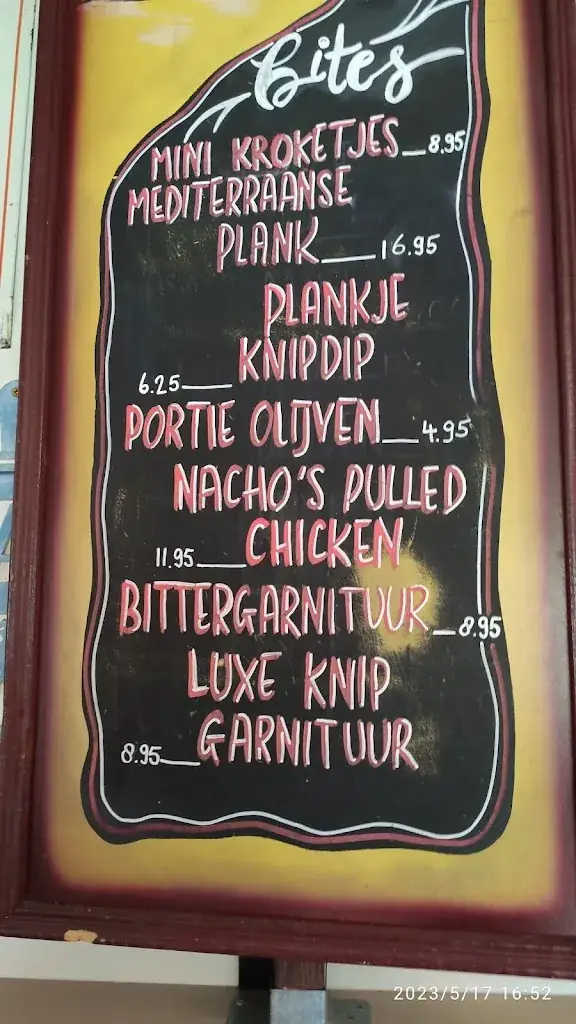 Bites
MINI KROKETJES 8.95
MEDITERRAANSE
PLANK 16.95
PLANKJE
KNIPDIP
6.25
PORTIE OLIJVEN 4.95
NACHO'S PULLED
11.95 CHICKEN
BITTERGARNITUUR 8.95
LUXE KNIP
8.95 GARNITUUR
2023/5/17 16:52